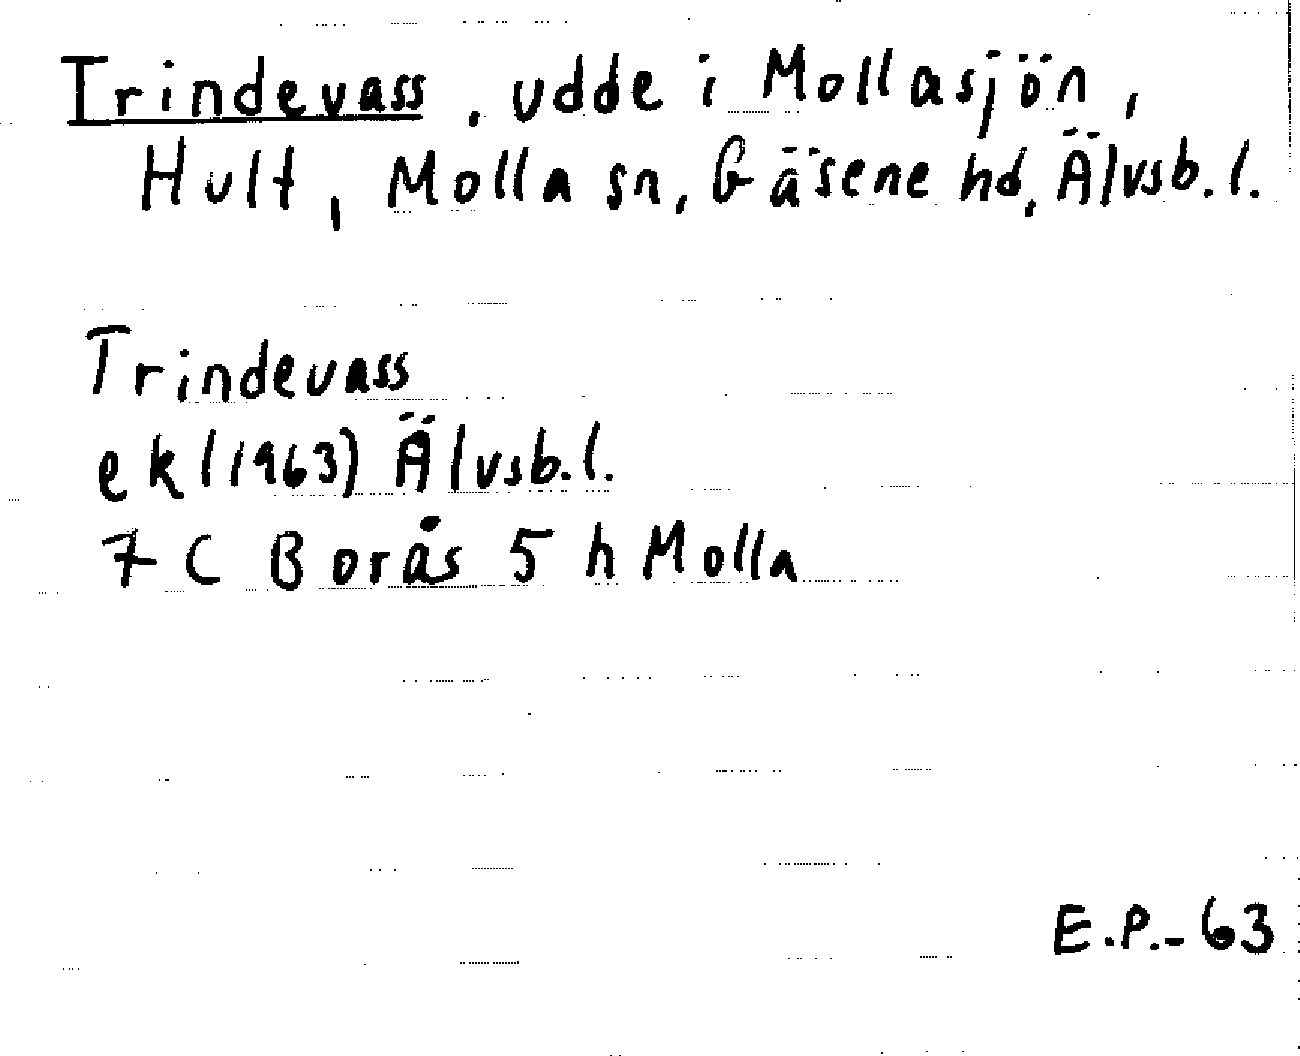 Trindevass, udde i Mollasjön,
Hult, Molla sn, Gäsene hd, Älvsb.l.
Trindevass
ek (1963) Älvsb.l.
7 C Borås 5 h Molla
E.P.-63